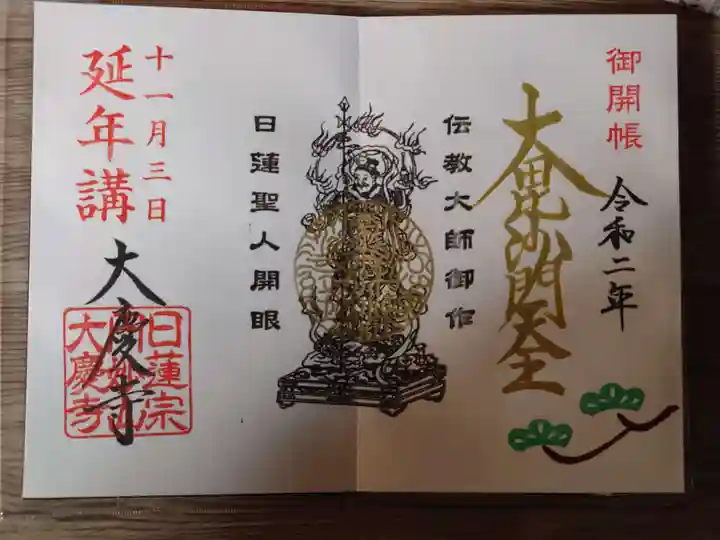 御開帳
令和二年
大毘沙門天王
伝教大師御作
日蓮聖人開眼
十一月三日
延年講
大慶寺
日蓮宗
大慶寺